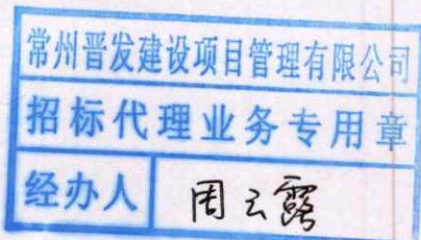 常州晋发建设项目管理有限公司
招标代理业务专用章
经办人 周云露